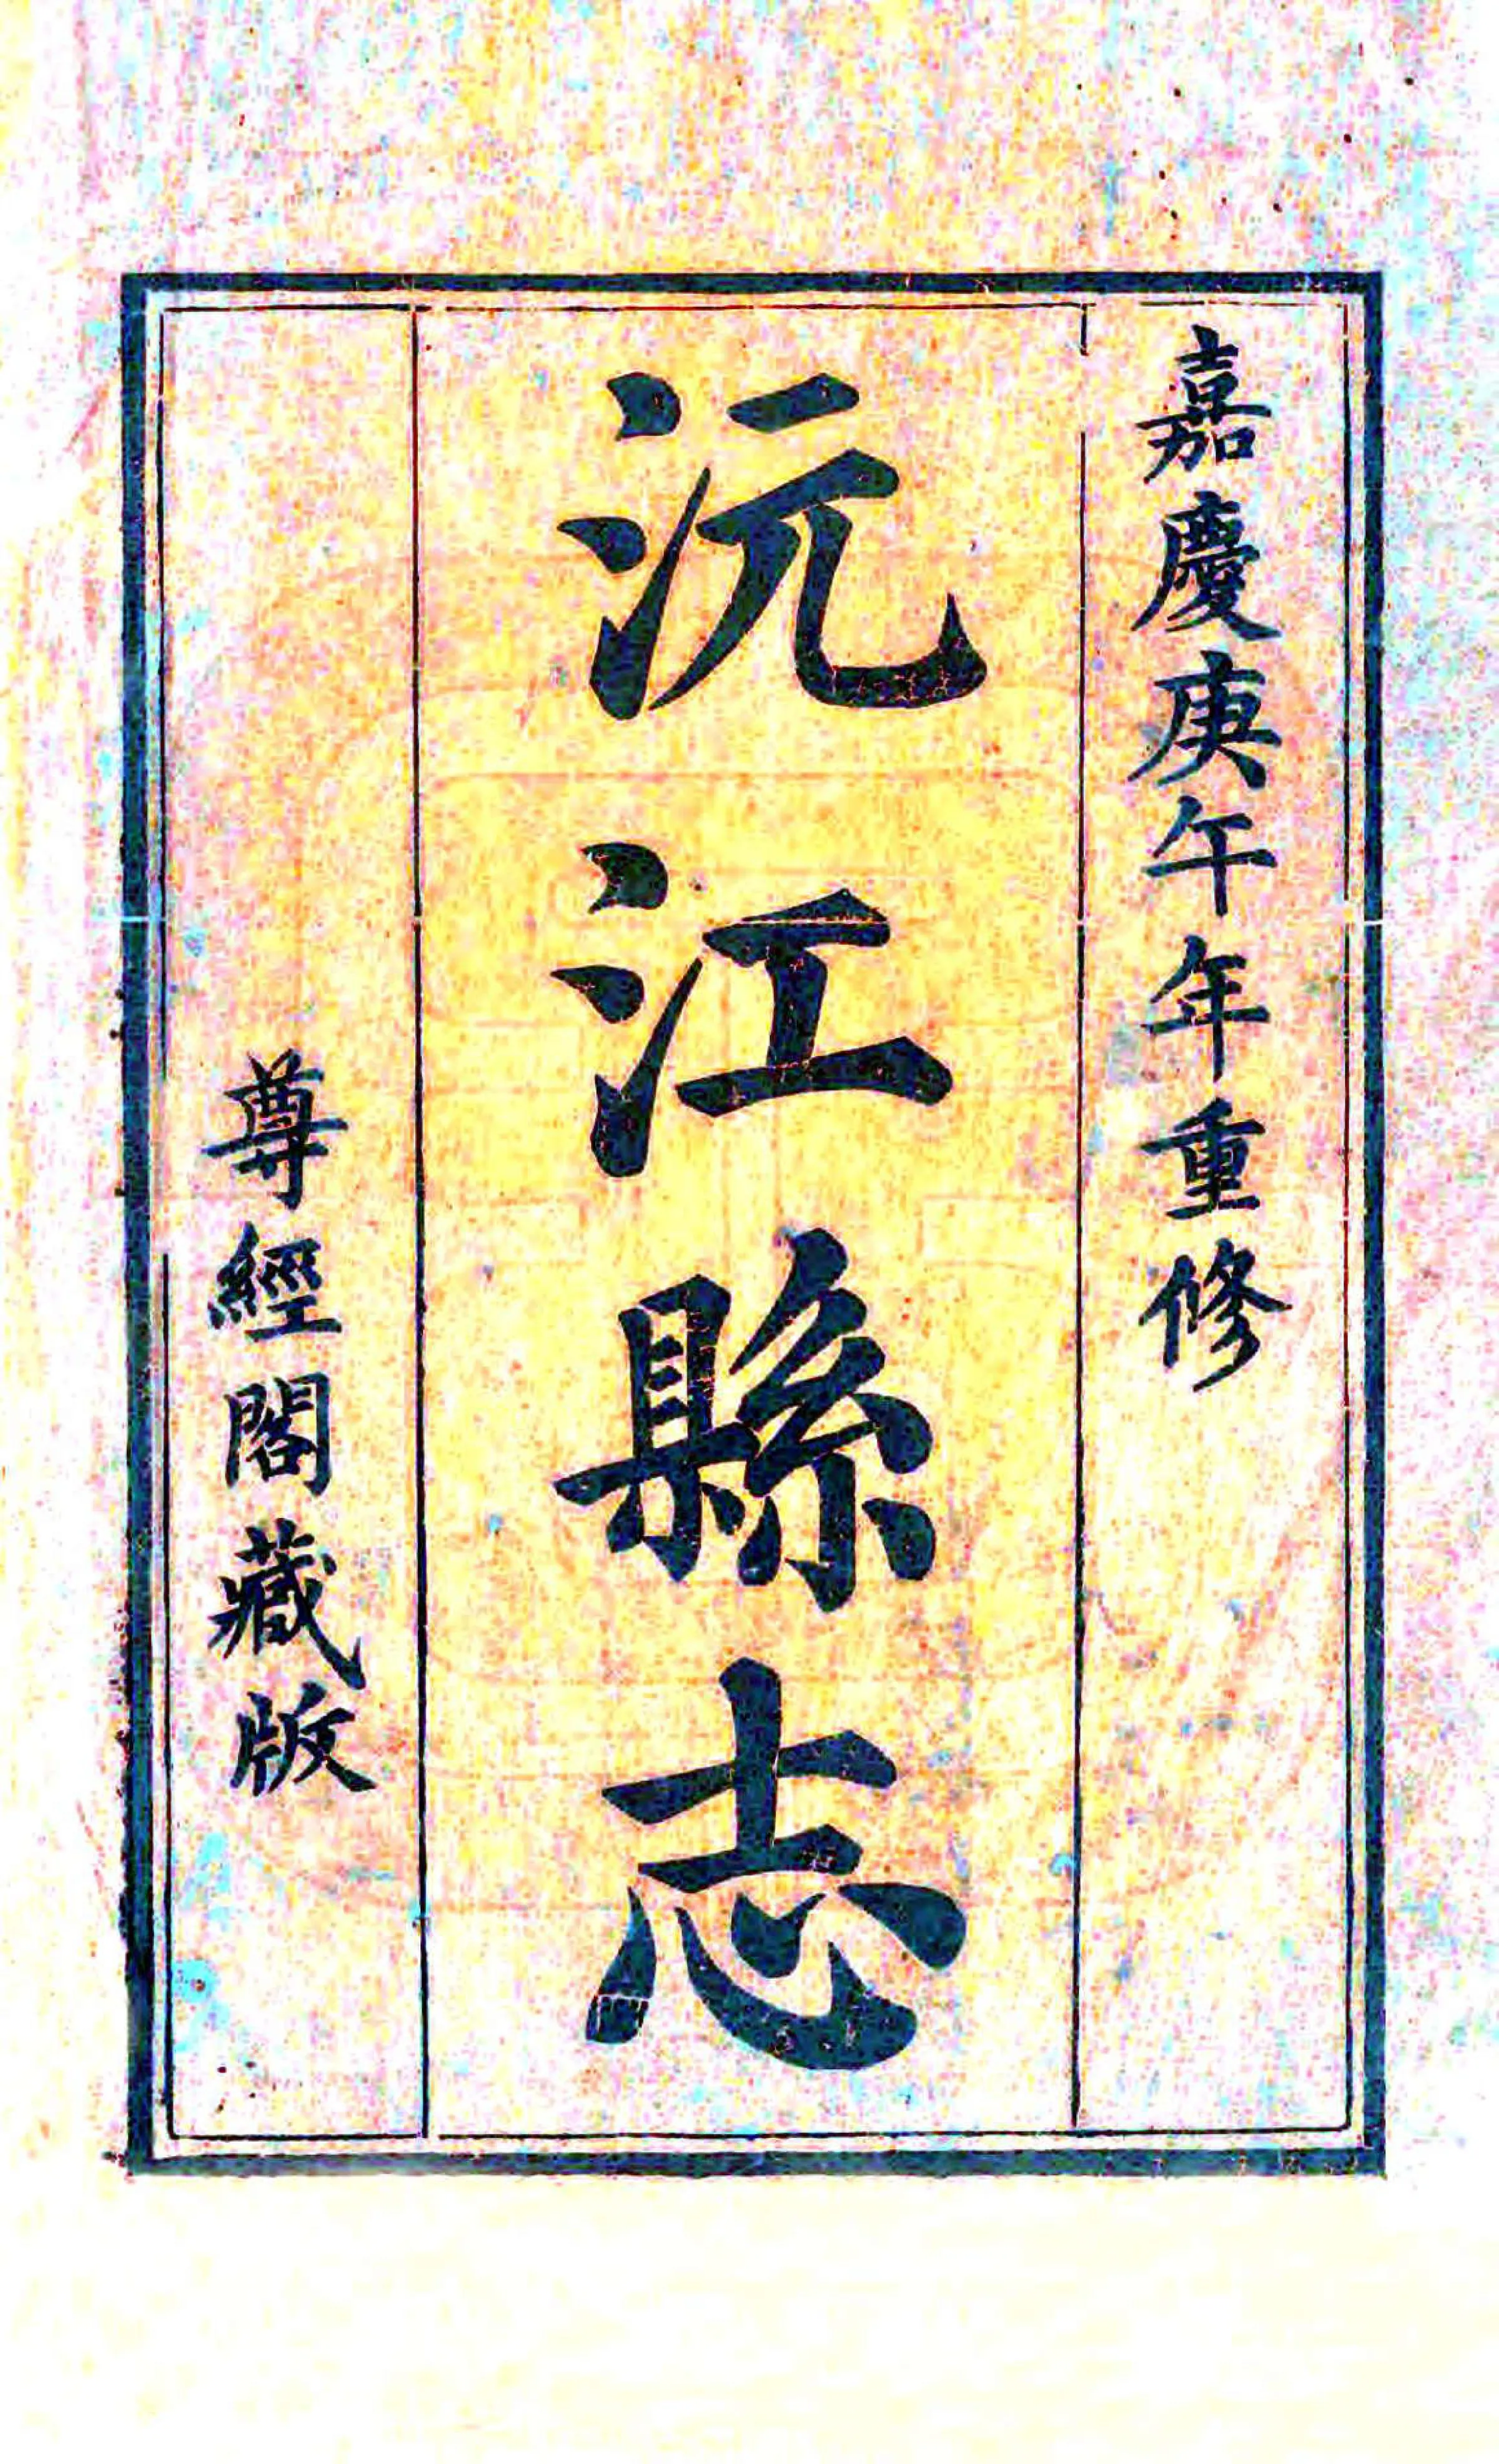 嘉慶庚午年重修
沅江縣志
尊經閣藏版